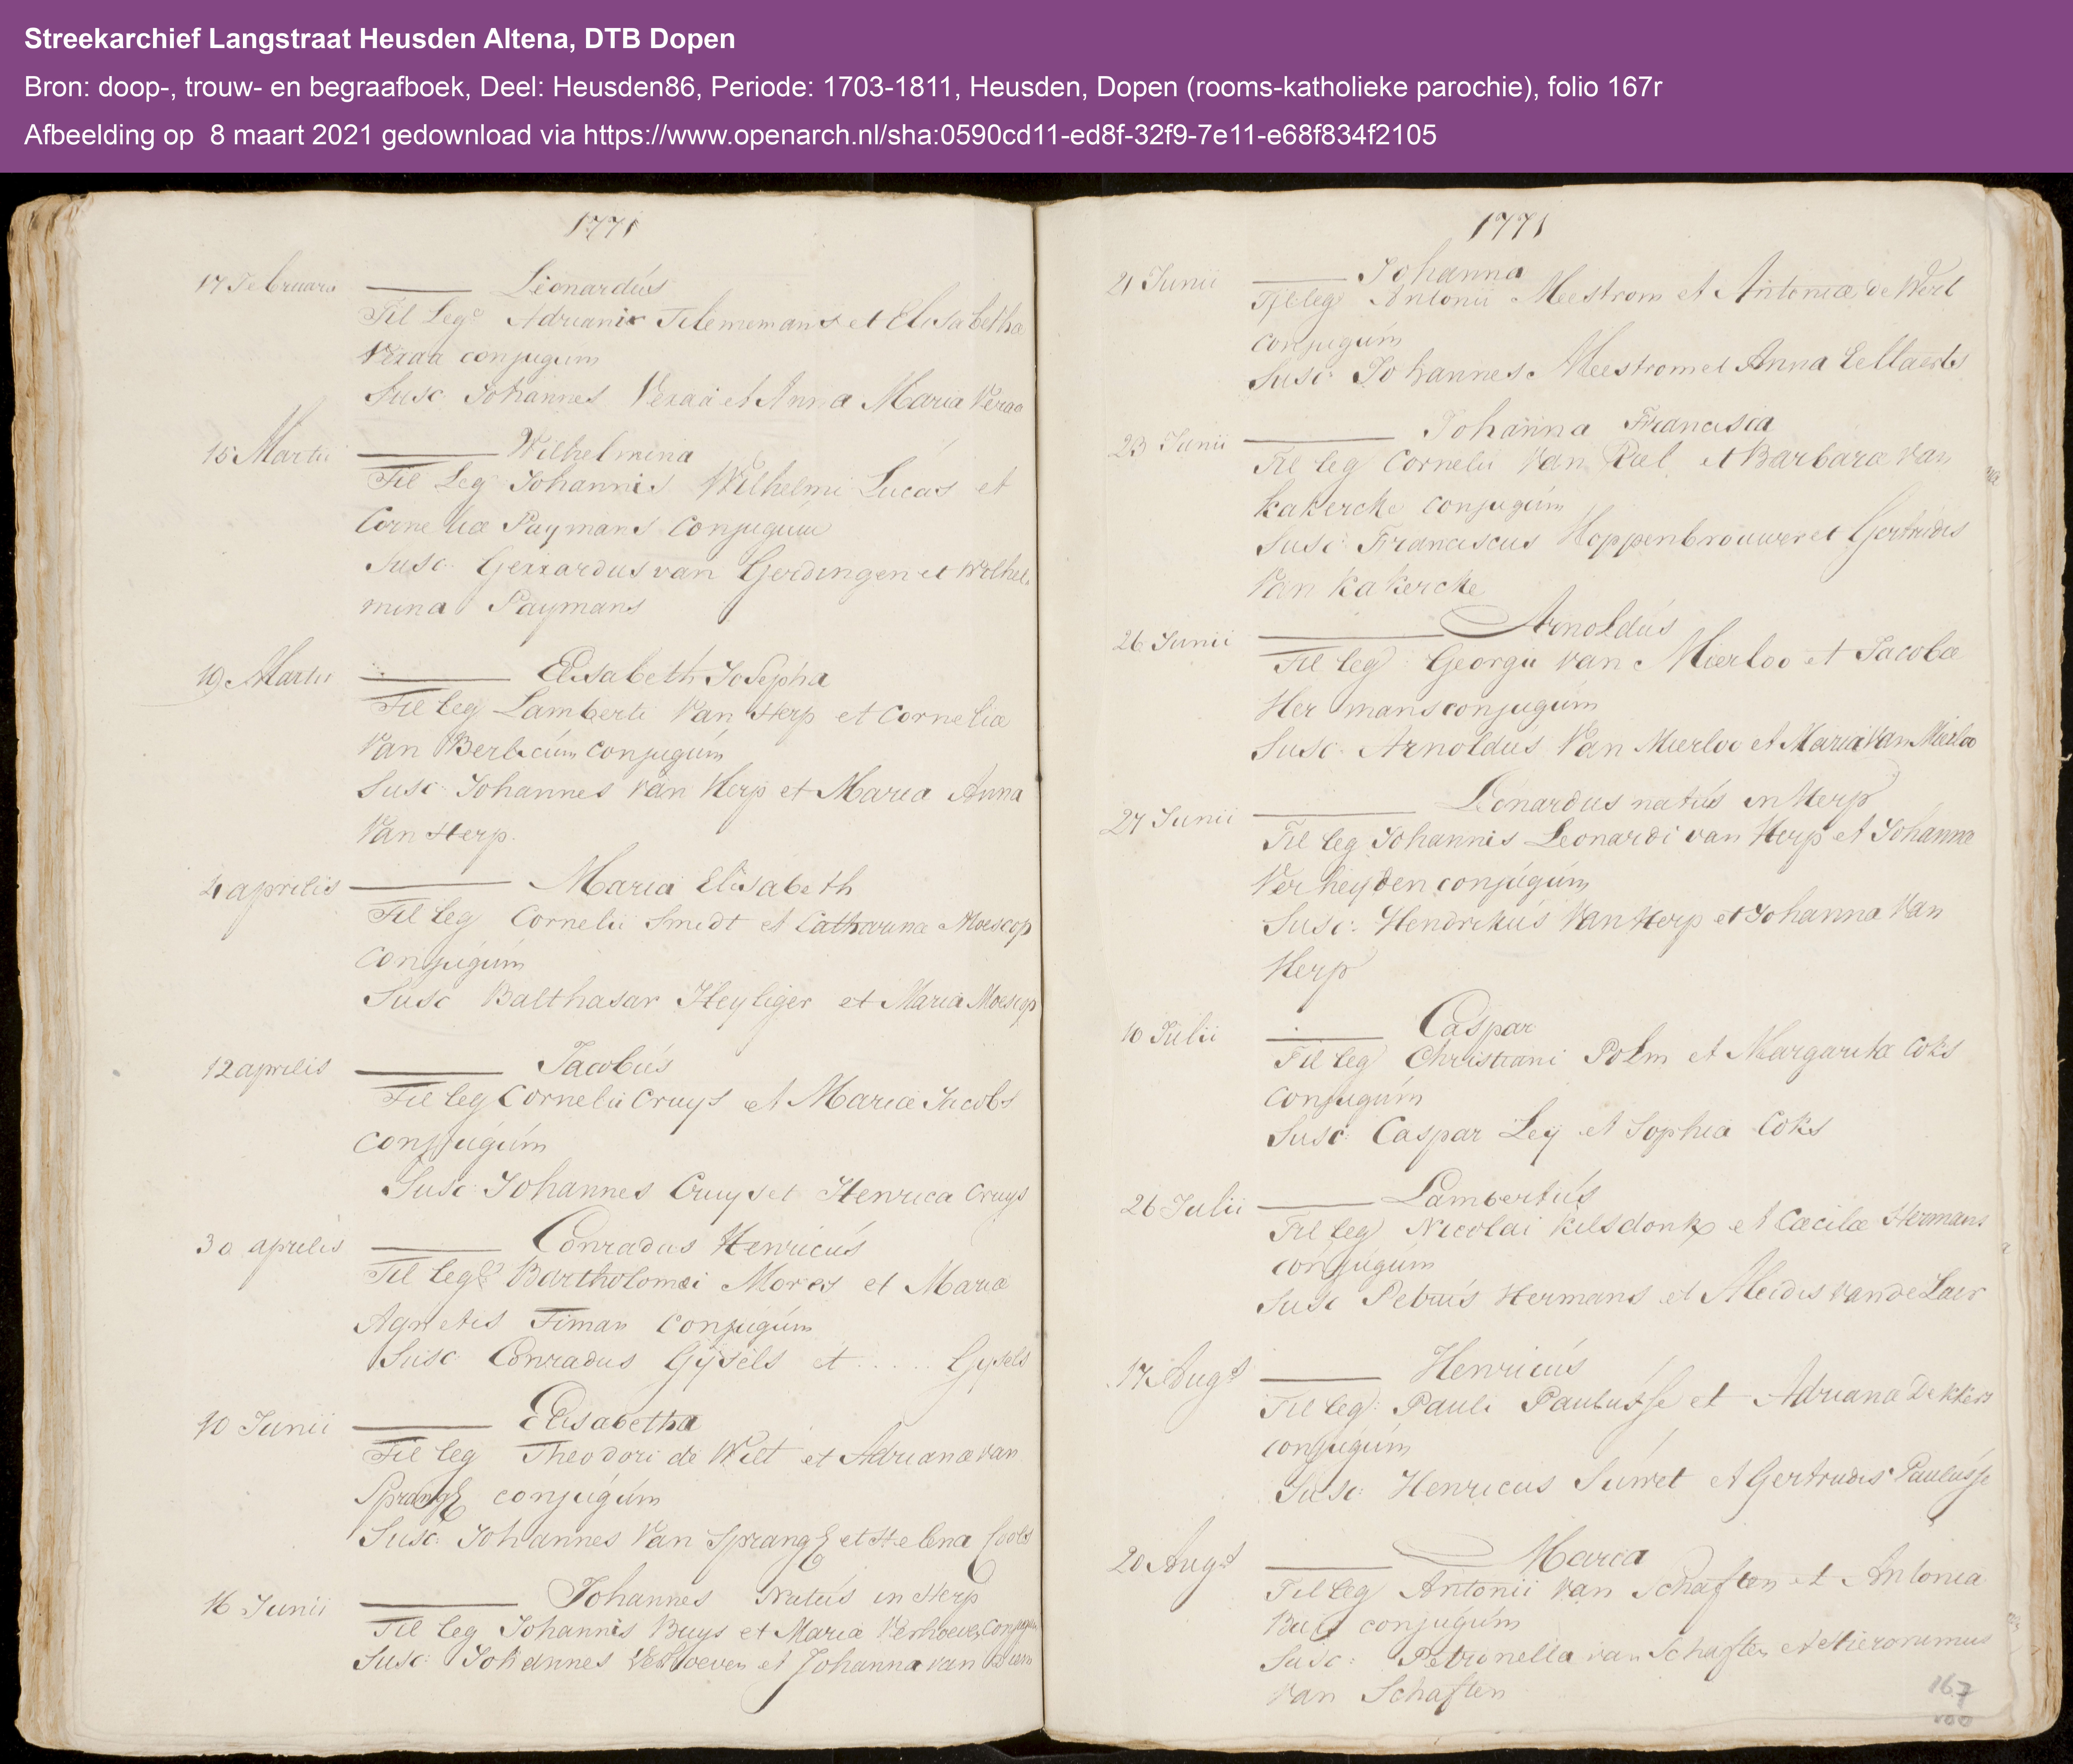 Streekarchief Langstraat Heusden Altena, DTB Dopen
Bron: doop-, trouw- en begraafboek, Deel: Heusden86, Periode: 1703-1811, Heusden, Dopen (rooms-katholieke parochie), folio 167r
Afbeelding op 8 maart 2021 gedownload via https://www.openarch.nl/sha:0590cd11-ed8f-32f9-7e11-e68f834f2105
1771
17 Februari Leonardus
Fil Leg Adriani Tilemans et Elisabetha
Veraa conjugum
Susc Johannes Veraa et Anna Maria Veraa
15 Martii Wilhelmina
Fil Leg Johannis Wilhelmi Lucas et
Corneliæ Paymans conjugum
Susc. Gerrardus van Gerdingen et Wilhel-
mina Paymans
19 Martii Elisabeth Josepha
Fil leg Lamberti Van Herp et Corneliæ
Van Berlicum conjugum
Susc: Johannes Van Herp et Maria Anna
Van Herp.
4 aprilis Maria Elisabeth
Fil leg Cornelii Smidt et Catharinæ Moescop
conjugum
Susc Balthasar Heyliger et Maria Moescop
12 aprilis Jacobus
Fil leg Cornelii Cruys et Mariæ Jacobs
conjugum
Susc: Johannes Cruys et Henrica Cruys
30 aprilis Conradus Henricus
Fil leg Bartholomæi Mores et Mariæ
Agnetis Timan conjugum
Susc: Conradus Gijsels et ..... Gysels
10 Junii Elisabetha
Fil leg Theodori de Wilt et Adrianæ van
Sprang conjugum
Susc: Johannes Van Sprang et Helena Cools
16 Junii Johannes Natus in Herp
Fil leg Johannis Buys et Mariæ Verhoeven conjugum
Susc: Johannes Verhoeven et Johanna van
1771
21 Junii Johanna
Fil leg Antonii Meestrom et Antoniæ de Wert
conjugum
Susc: Johannes Meestrom et Anna Eellaerts
23 Junii Johanna Francisca
Fil leg Cornelii Van Riel et Barbaræ Van
Kakercke conjugum
Susc: Franciscus Hoppenbrouwer et Gertrudis
Van Kakercke
26 Junii Arnoldus
Fil leg: Georgii van Mierloo et Jacobæ
Hermans conjugum
Susc: Arnoldus Van Mierloo et Maria Van Mierloo
27 Junii Leonardus natus in Herp
Fil leg Johannis Leonardi van Herp et Johannæ
Verheyden conjugum
Susc: Hendrikus Van Herp et Johanna Van
Herp
10 Julii Caspar
Fil leg Christiani Polm et Margaritæ Coks
conjugum
Susc: Caspar Ley et Sophia Coks
26 Julii Lambertus
Fil leg Nicolai Kilsdonk et Cæcilæ Hermans
conjugum
Susc Petrus Hermans et Aleidis van de Laer
17 Augst Henricus
Fil leg: Pauli Paulusse et Adrianæ Dekkers
conjugum
Susc: Henricus Suwet et Gertrudis Paulusse
20 Augst Maria
Fil leg Antonii Van Schaften et Antonia
conjugum
Susc: Petronella van Schaften et Hieronimus
van Schaften
167